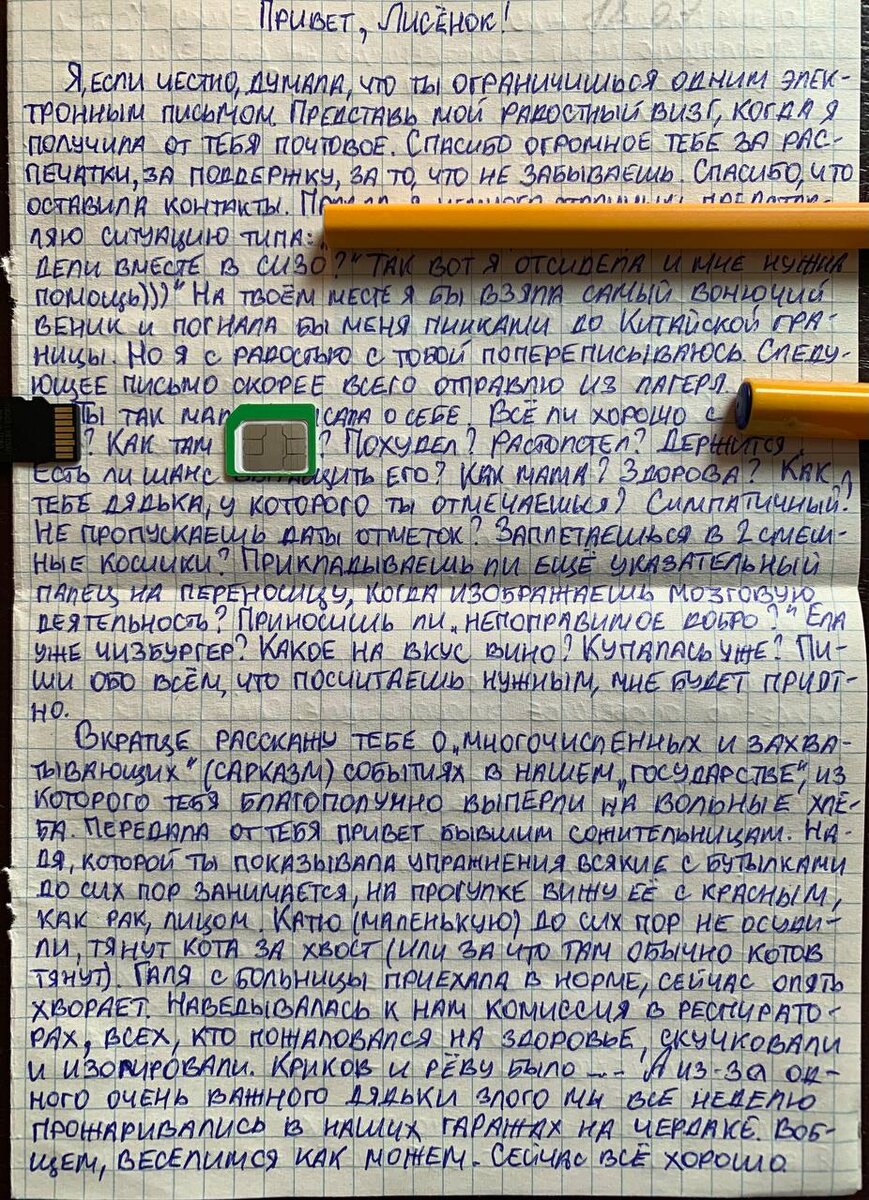 Привет, Лисёнок!
Я, если честно, думала, что ты ограничишься одним элек-
тронным письмом. Представь мой радостный визг, когда я
получила от тебя почтовое. Спасибо огромное тебе за рас-
печатки, за поддержку, за то, что не забываешь. Спасибо, что
оставила контакты.
ляю ситуацию типа:
дели вместе в СИЗО?" Так вот я отсидела и мне нужна
помощь)))" На твоём месте я бы взяла самый вонючий
веник и погнала бы меня пинками до Китайской гра-
ницы. Но я с радостью с тобой попереписываюсь. Следу-
ющее письмо скорее всего отправлю из лагеря.
Ты так о себе. Всё ли хорошо с
? Как там ? Похудел? Растолстел? Держится?
Есть ли шанс его? Как мама? Здорова? Как
тебе дядька, у которого ты отмечаешься? Симпатичный?
Не пропускаешь даты отметок? Заплетаешься в 2 смеш-
ные косички? Прикладываешь ли ещё указательный
палец на переносицу, когда изображаешь мозговую
деятельность? Приносишь ли „непоправимое добро?" Ела
уже чизбургер? Какое на вкус вино? Купалась уже? Пи-
ши обо всём, что посчитаешь нужным, мне будет прият-
но.
Вкратце расскажу тебе о „многочисленных и захва-
тывающих" (сарказм) событиях в нашем „государстве", из
которого тебя благополучно выперли на вольные хле-
ба. Передала от тебя привет бывшим сожительницам. На-
дя, которой ты показывала упражнения всякие с бутылками
до сих пор занимается, на прогулке вижу её с красным,
как рак, лицом. Катю (маленькую) до сих пор не осуди-
ли, тянут кота за хвост (или за что там обычно котов
тянут). Галя с больницы приехала в норме, сейчас опять
хворает. Наведывалась к нам комиссия в респирато-
рах, всех, кто пожаловался на здоровье, скучковали
и изолировали. Криков и рёву было... А из-за од-
ного очень важного дядьки злого мы все неделю
прожаривались в наших гаражах на чердаке. Вооб-
щем, веселимся как можем. Сейчас всё хорошо